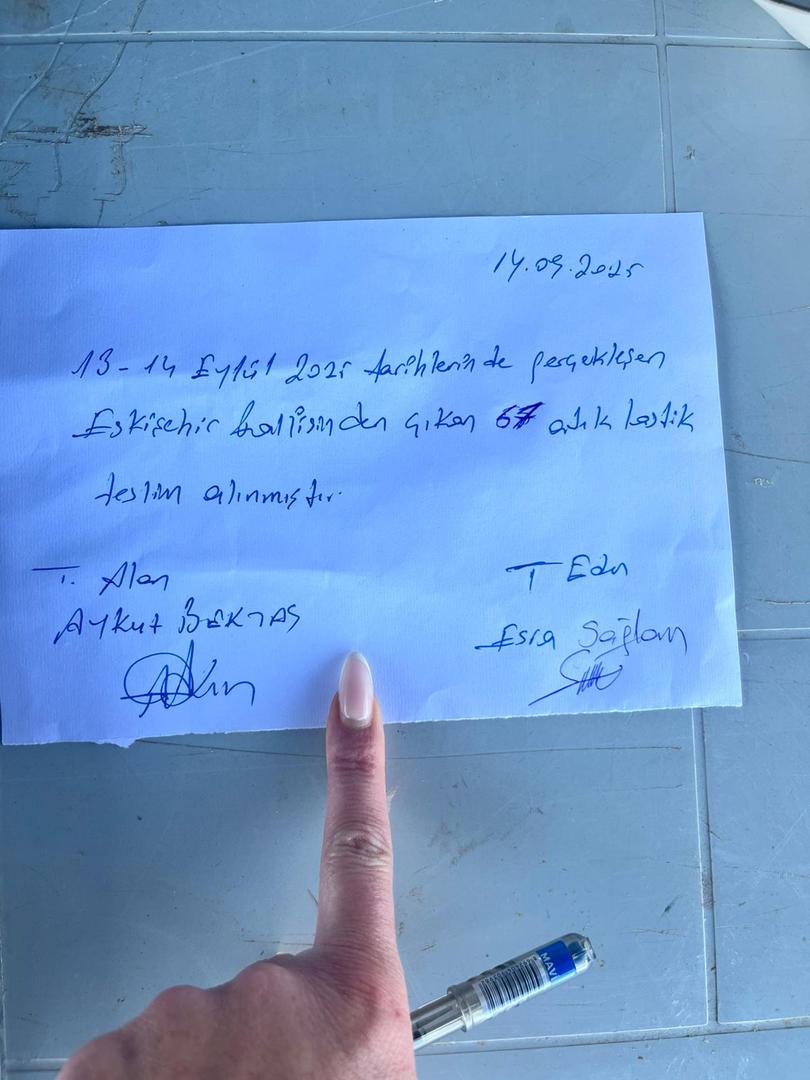 14.09.2025
13-14 Eylül 2025 tarihlerinde gerçekleşen
Eskişehir Rallisinden çıkan 67 atık lastik
teslim alınmıştır.
T. Alan
T Eden
Aykut BEKTAŞ
Esra Sağlam
MAVİ